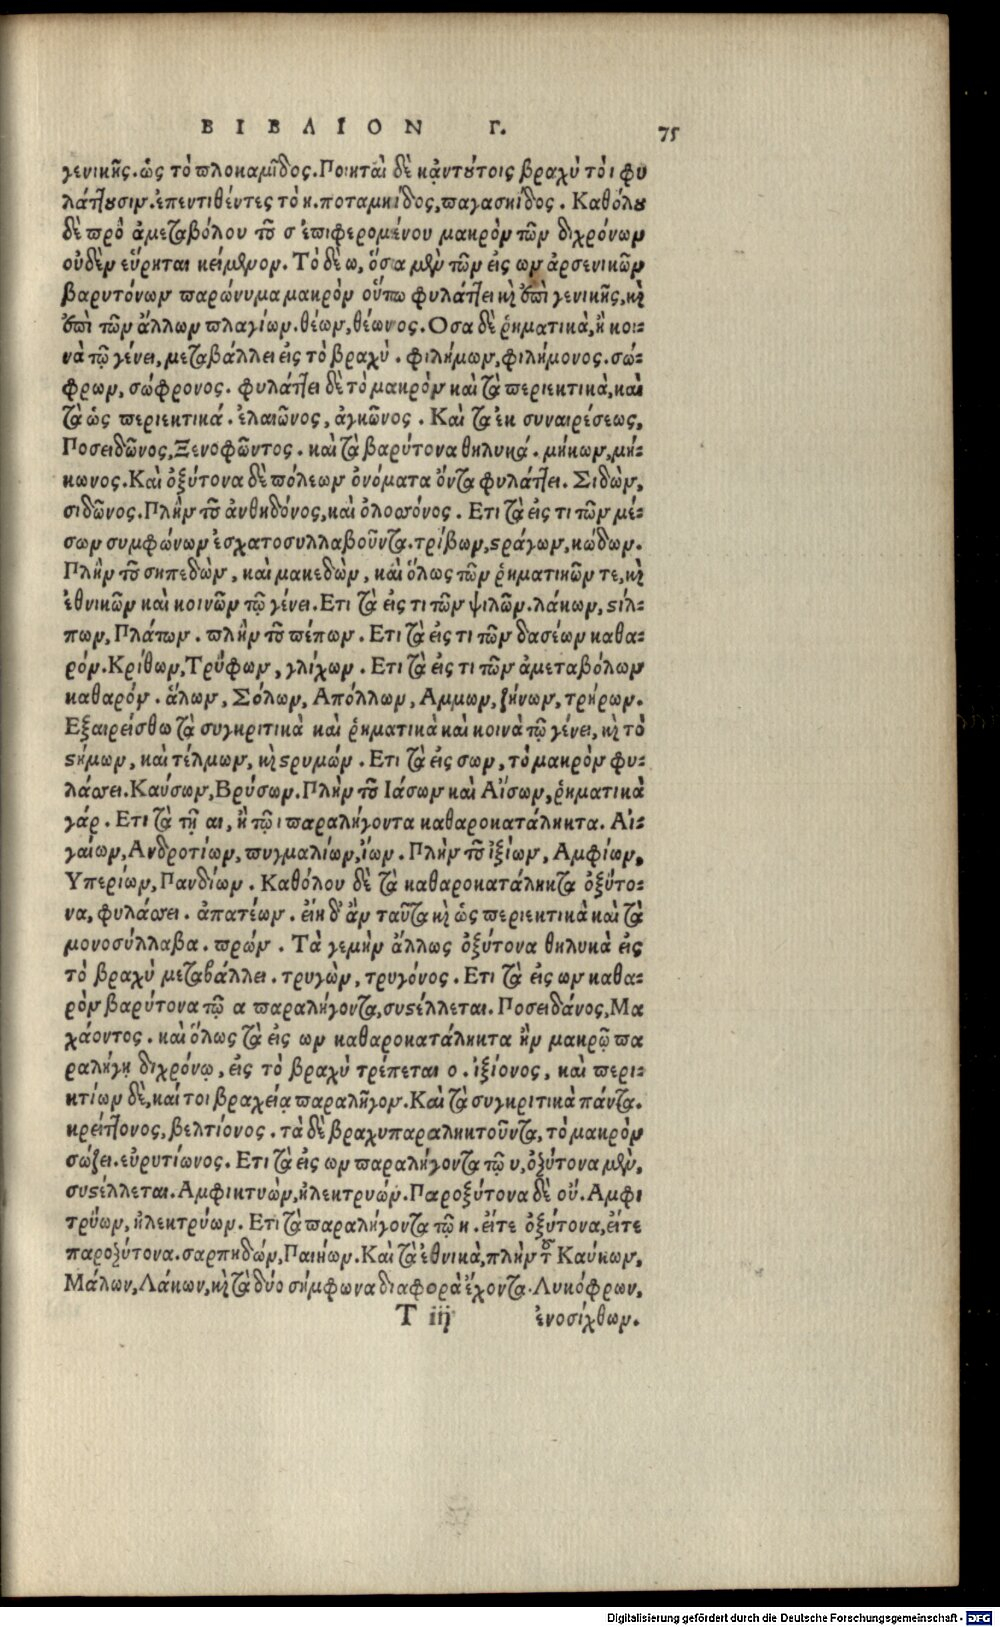 ΒΙΒΛΙΟΝ Γ. 75
γενικῆς. ὡς τὸ πλοκαμῖδος. Ποιηταὶ δὲ κἀντούτοις βραχὺ τὸ ι φυ
λάττουσιν. ἐπεντιθέντες τὸ η. ποταμηΐδος, παγασηΐδος. Καθόλου
δὲ πρὸ ἀμεταβόλου τοῦ σ ἐπιφερομένου μακρὸν τῶν διχρόνων
οὐδὲν εὕρηται κείμενον. Τὸ δὲ ω, ὅσα μὲν τῶν εἰς ων ἀρσενικῶν
βαρυτόνων παρώνυμα μακρὸν οὕπω φυλάττει κỳ ἐπὶ γενικῆς, καὶ
ἐπὶ τῶν ἄλλων πλαγίων. θέων, θέωνος. Οσα δὲ ῥηματικὰ, ἢ κοι-
νὰ τῷ γένει, μεταβάλλει εἰς τὸ βραχὺ. φιλήμων, φιλήμονος. σώ-
φρων, σώφρονος. φυλάττει δὲ τὸ μακρὸν καὶ τὰ περιεκτικὰ, καὶ
τὰ ὡς περιεκτικά. ἐλαιῶνος, ἀγκῶνος. Καὶ τὰ ἐκ συναιρέσεως,
Ποσειδῶνος, Ξενοφῶντος. καὶ τὰ βαρύτονα θηλυκά. μήκων, μή-
κωνος. Καὶ ὀξύτονα δὲ πόλεων ὀνόματα ὄντα φυλάττει. Σιδὼν,
σιδῶνος. Πλὴν τοῦ ἀνθηδόνος, καὶ ὀλοσσόνος. Ετι τὰ εἰς τι τῶν μέ-
σων συμφώνων ἐσχατοσυλλαβοῦντα. τρίβων, στράγων, κώδων.
Πλὴν τοῦ σηπεδὼν, καὶ μακεδὼν, καὶ ὅλως τῶν ῥηματικῶν τε, καὶ
ἐθνικῶν καὶ κοινῶν τῷ γένει. Ετι τὰ εἰς τι τῶν ψιλῶν. λάκων, στίλ-
πων, Πλάτων. πλὴν τοῦ πέπων. Ετι τὰ εἰς τι τῶν δασέων καθα-
ρόν. Κρίθων, Τρύφων, γλίχων. Ετι τὰ εἰς τι τῶν ἀμεταβόλων
καθαρόν. ἅλων, Σόλων, Απόλλων, Αμμων, ζήνων, τρήρων.
Εξαιρείσθω τὰ συγκριτικὰ καὶ ῥηματικὰ καὶ κοινὰ τῷ γένει, καὶ τὸ
στήμων, καὶ τέλμων, καὶ στρυμών. Ετι τὰ εἰς σων, τὸ μακρὸν φυ-
λάσσει. Καύσων, Βρύσων. Πλὴν τοῦ Ιάσων καὶ Αἴσων, ῥηματικὰ
γάρ. Ετι τὰ τῇ αι, ἢ τῷ ι παραλήγοντα καθαροκατάληκτα. Αἰ-
γαίων, Ανδροτίων, πυγμαλίων, ἵων. Πλὴν τοῦ ἰξίων, Αμφίων,
Υπερίων, Πανδίων. Καθόλου δὲ τὰ καθαροκατάληκτα ὀξύτο-
να, φυλάσσει. ἀπατέων. εἴη δ' ἂν ταῦτα καὶ ὡς περιεκτικὰ καὶ τὰ
μονοσύλλαβα. πρών. Τὰ γεμὴν ἄλλως ὀξύτονα θηλυκὰ εἰς
τὸ βραχὺ μεταβάλλει. τρυγὼν, τρυγόνος. Ετι τὰ εἰς ων καθα-
ρὸν βαρύτονα τῷ α παραλήγοντα, συστέλλεται. Ποσειδάνος, Μα
χάοντος. καὶ ὅλως τὰ εἰς ων καθαροκατάληκτα ἢν μακρῷ πα
ραλήγῃ διχρόνῳ, εἰς τὸ βραχὺ τρέπεται ο. ἰξίονος, καὶ περι-
κτίων δὲ, καί τοι βραχείᾳ παραλῆγον. Καὶ τὰ συγκριτικὰ πάντα.
κρείττονος, βελτίονος. τὰ δὲ βραχυπαραληκτοῦντα, τὸ μακρὸν
σώζει. εὐρυτίωνος. Ετι τὰ εἰς ων παραλήγοντα τῷ υ, ὀξύτονα μὲν,
συστέλλεται. Αμφικτυὼν, ἠλεκτρυών. Παροξύτονα δὲ οὔ. Αμφι
τρύων, ἠλεκτρύων. Ετι τὰ παραλήγοντα τῷ η. εἴτε ὀξύτονα, εἴτε
παροξύτονα. σαρπηδών, Παιήων. Καὶ τὰ ἐθνικὰ, πλὴν τοῦ Καύκων,
Μάλων, Λάκων, καὶ τὰ δύο σύμφωνα διαφορὰ ἔχοντα. Λυκόφρων,
T iij ἐνοσίχθων.
Digitalisierung gefördert durch die Deutsche Forschungsgemeinschaft - DFG